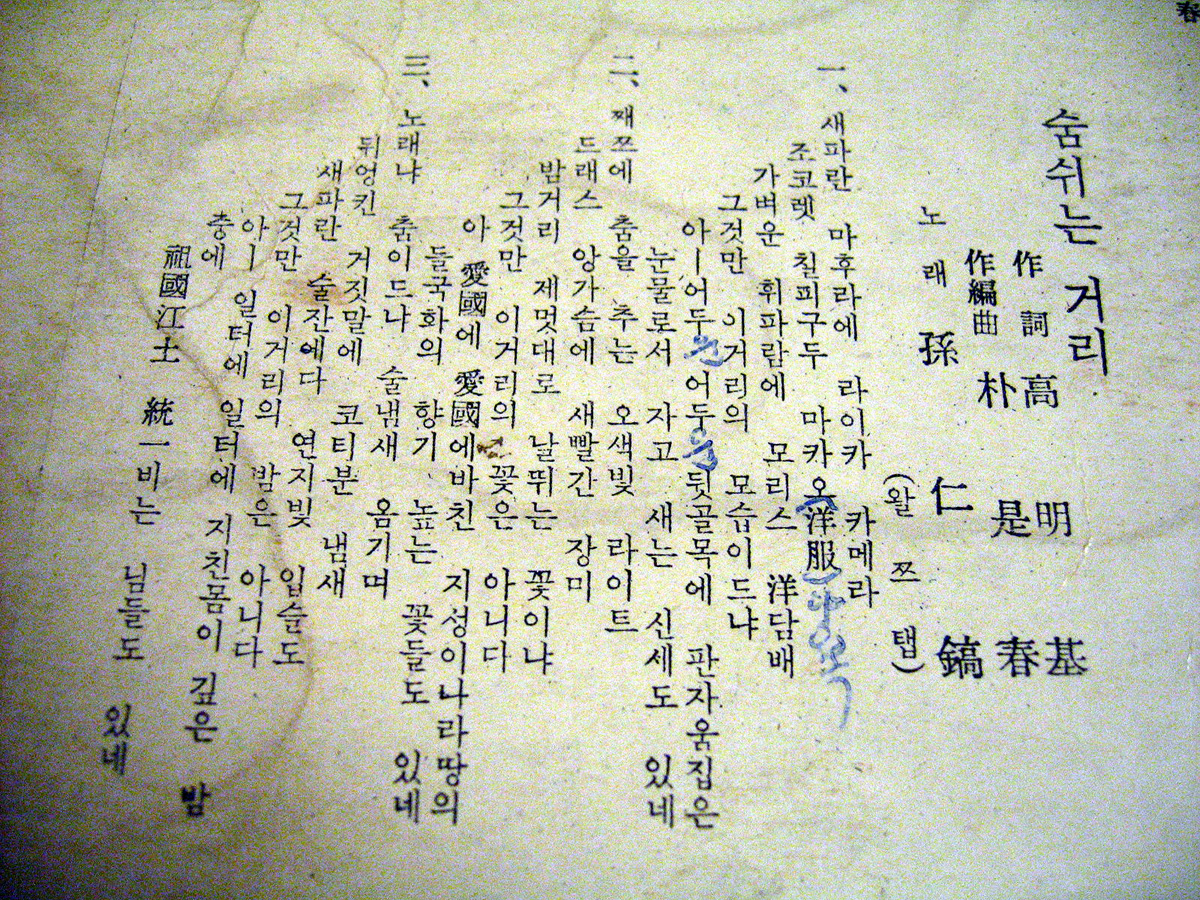 숨쉬는 거리
作詞 高明基
作編曲 朴是春
노래 孫仁鎬
(왈쯔탭)
一、새파란 마후라에 라이카 카메라
조코렛 칠피구두 마카오洋服 양복
가벼운 휘파람에 모리스 洋담배
그것만 이거리의 모습이드냐
아ー어두운어두운뒷골목에 판자움집은
눈물로서 자고 새는 신세도 있네
二、째쯔에 춤을 추는 오색빛 라이트
드래스 앙가슴에 새빨간 장미
밤거리 제멋대로 날뛰는 꽃이냐
그것만 이거리의 꽃은 아니다
아 愛國에 愛國에바친 지성이나라땅의
들국화의 향기 높는 꽃들도 있네
三、노래냐 춤이드냐 술냄새 옴기며
뒤엉킨 거짓말에 코티분 냄새
새파란 술잔에다 연지빛 입술도
그것만 이거리의 밤은 아니다
아ー 일터에 일터에 지친몸이 깊은 밤
충에
祖國江土 統一비는 님들도 있네
春